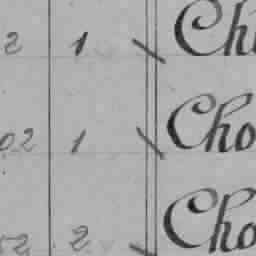 2 1 Ch
02 1 Cho
52 2 Cho